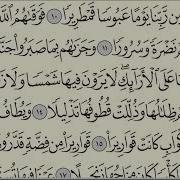 مِن رَّبِّنَا يَوْمًا عَبُوسًا قَمْطَرِيرًا ١٠ فَوَقَىٰهُمُ ٱللَّهُ
نَضْرَةً وَسُرُورًا ١١ وَجَزَىٰهُم بِمَا صَبَرُوا۟ جَنَّةً
عَلَى ٱلْأَرَآئِكِ ۖ لَا يَرَوْنَ فِيهَا شَمْسًا وَلَا زَ
ظِلَٰلُهَا وَذُلِّلَتْ قُطُوفُهَا تَذْلِيلًا ١٤ وَيُطَافُ
كْوَابٍ كَانَتْ قَوَارِيرَا۠ ١٥ قَوَارِيرَا۟ مِن فِضَّةٍ قَدَّرُو
كَانَ مِزَاجُهَا زَنجَبِيلًا ١٧